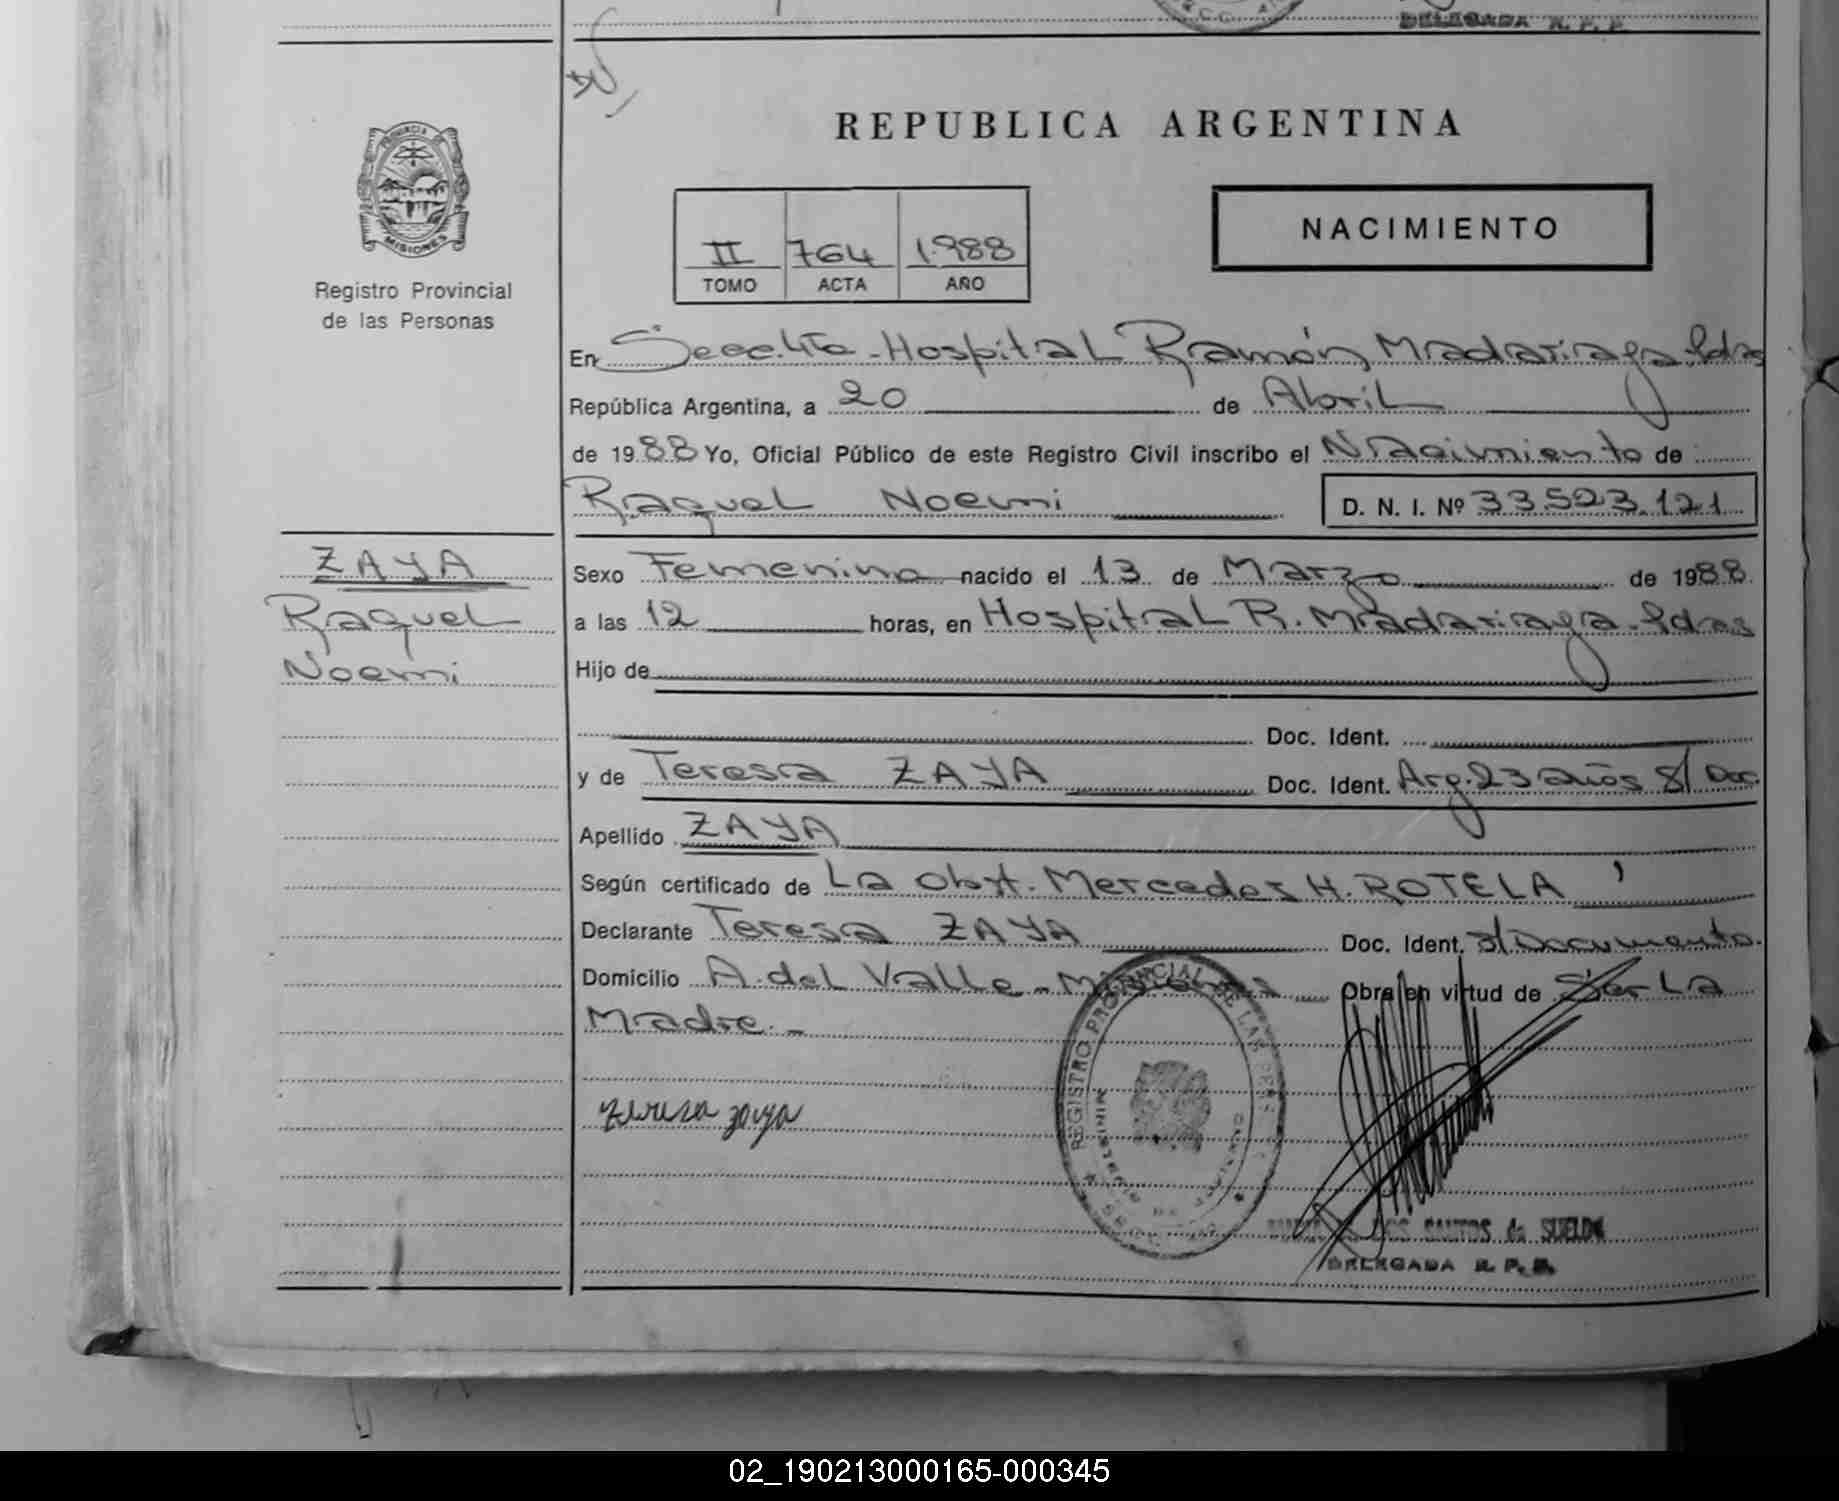 DELEGADA R. P. P.
REPUBLICA ARGENTINA
PROVINCIA DE
MISIONES
Registro Provincial
de las Personas
NACIMIENTO
II 764 1.988
TOMO ACTA AÑO
En Secc. 4ta - Hospital Ramón Madariaga. Pdas
República Argentina, a 20 de Abril
de 1988 Yo, Oficial Público de este Registro Civil inscribo el Nacimiento de
Raquel Noemi D. N. I. Nº 33.523.121
ZAYA
Raquel
Noemi
Sexo Femenino nacido el 13 de Marzo de 1988
a las 12 horas, en Hospital R. Madariaga. Pdas
Hijo de
Doc. Ident.
y de Teresa ZAYA Doc. Ident. Arg. 23 años S/ Doc.
Apellido ZAYA
Según certificado de La Obst. Mercedes H. ROTELA
Declarante Teresa ZAYA Doc. Ident. s/Documento.
Domicilio A. del Valle - Misiones Obra en virtud de Ser La
Madre. -
teresa zaya
REGISTRO PROVINCIAL DE LAS PERS
DOS SANTOS de SUELDO
DELEGADA R. P. P.
02_190213000165-000345